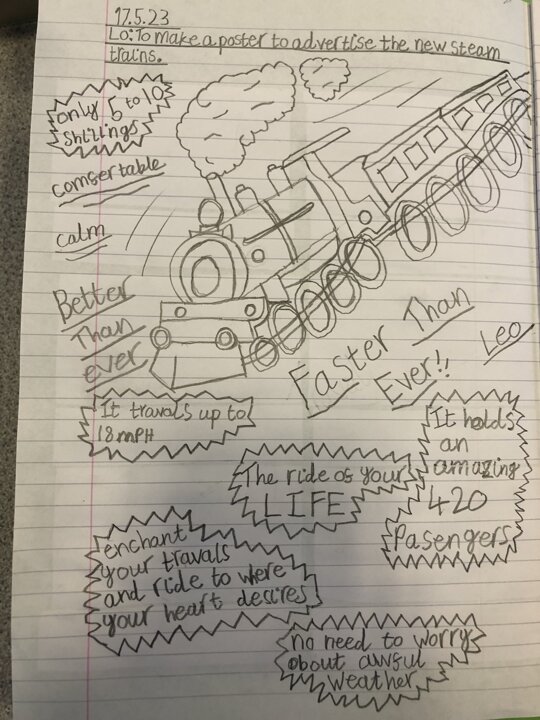 17.5.23
Lo: To make a poster to advertise the new steam
trains.
only 5 to 10
shillings
comsertable
calm
Better
Than
ever
Faster Than
Ever!!
Leo
It travals up to
18 mPH
It holds
an
amazing
420
Pasengers
The ride of your
LIFE
enchant
your travals
and ride to where
your heart desires
no need to worry
about awful
weather